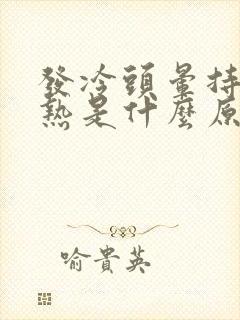 發冷頭暈持
熱是什麼原
喻貴英